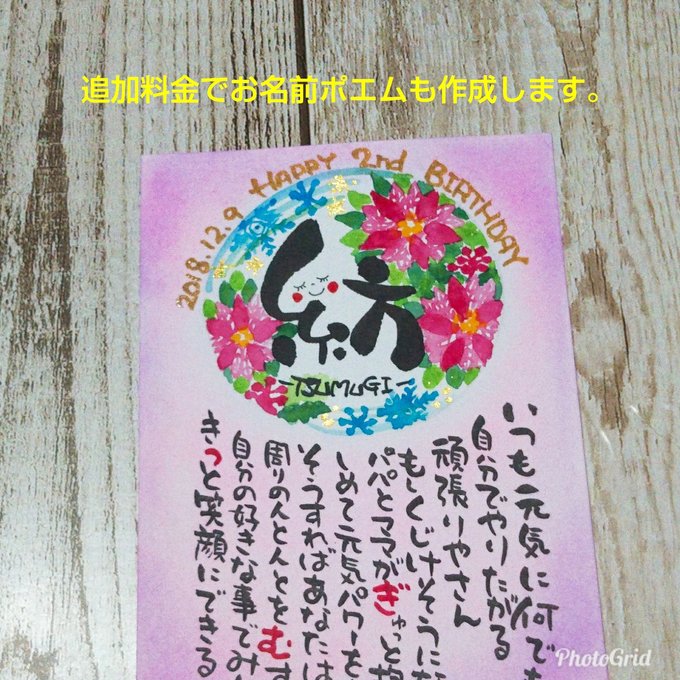 追加料金でお名前ポエムも作成します。
2018.12.9 HAPPY 2nd BIRTHDAY
紡
-TSUMUGI-
いつも元気に何でも
自分でやりたがる
頑張りやさん
もしくじけそうにな
パパとママがぎゅっと
しめて元気パワーを
そうすればあなたは
周りの人と人とをむす
自分の好きな事でみ
きっと笑顔にできる
PhotoGrid